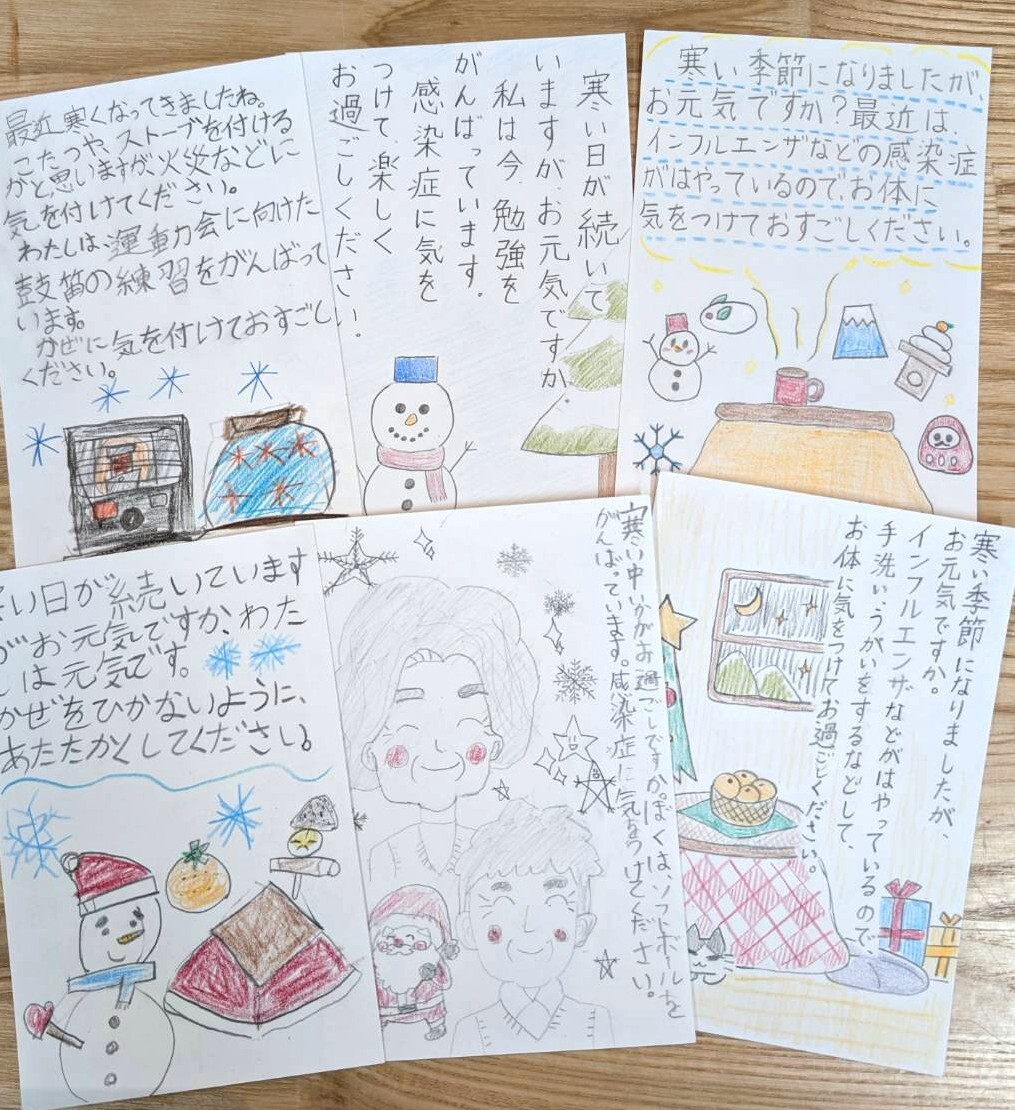 最近寒くなってきましたね。
こたつや、ストーブを付ける
かと思いますが、火災などに
気を付けてください。
わたしは、運動会に向けた
鼓笛の練習をがんばって
います。
かぜに気を付けておすごし
ください。
寒い日が続いて
いますが、お元気ですか
私は今、勉強を
がんばっています。
感染症に気を
つけて、楽しく
お過ごしください。
寒い季節になりましたが、
お元気ですか?最近は、
インフルエンザなどの感染症
がはやっているので、お体に
気をつけておすごしください。
い日が続いています
がお元気ですか、わた
しは元気です。
かぜをひかないように、
あたたかくしてください。
寒い中いかがお過ごしですか。ぼくは、ソフトボールを
がんばっています。感染症に気をつけてください。
寒い季節になりましたが、
お元気ですか。
インフルエンザなどがはやっているので、
手洗い、うがいをするなどして、
お体に気をつけてお過ごしください。